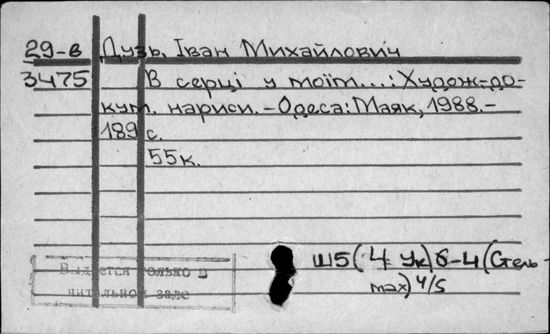 29-в Дузь, Іван Михайлович
3475 В серці у моїм...: Худож.-до-
кум. нариси. - Одеса: Маяк, 1988. -
189 с.
55к.
Ш5(4 Ук)6-4(Стель-
мах) 4/5
Выдается только в
читальном зале